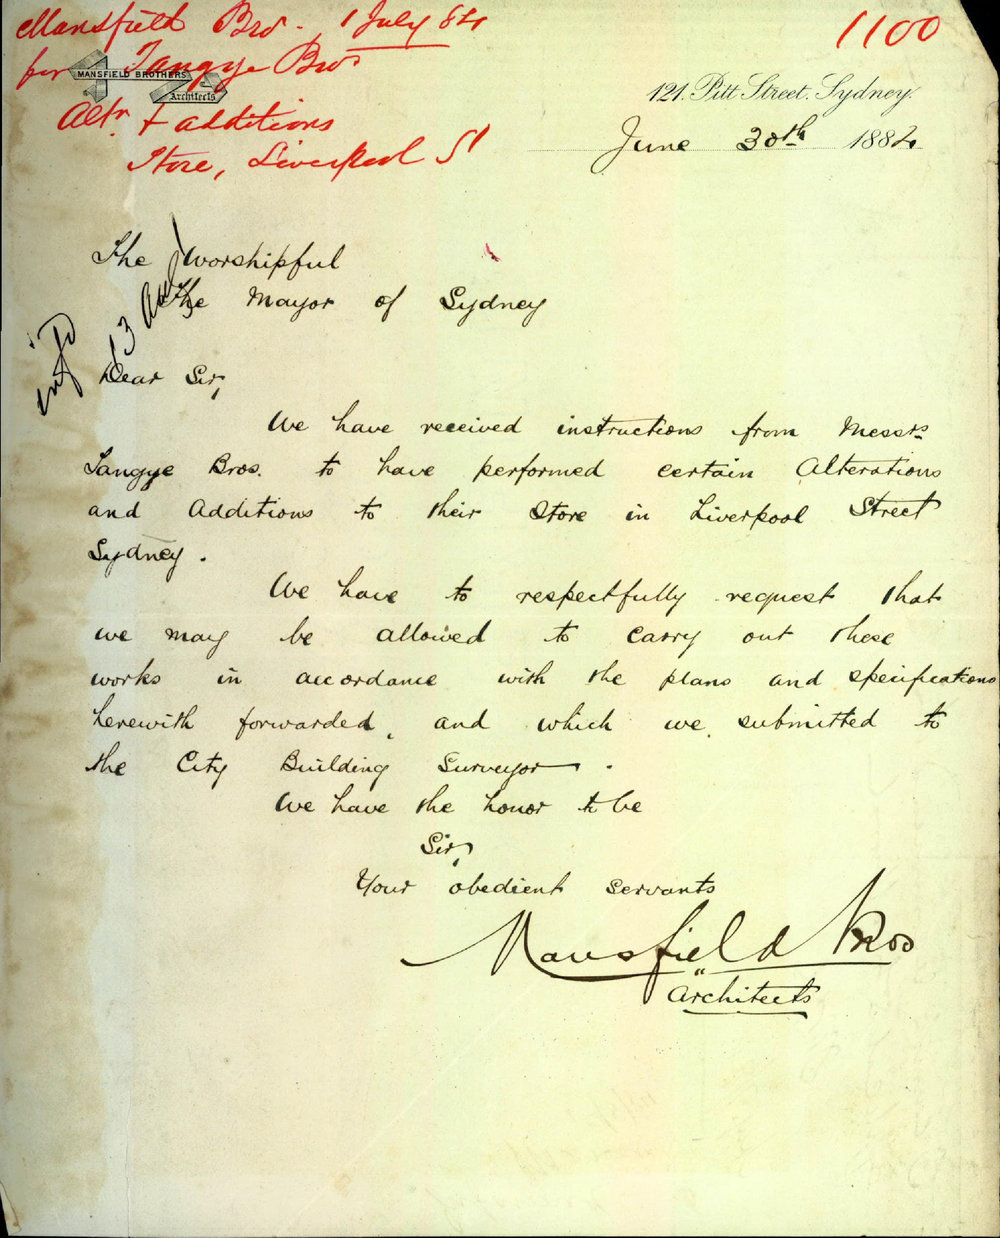 Mansfield Bros. 1 July 84
1100
for Tangye Bros
MANSFIELD BROTHERS
Architects
Altn. & additions
Store, Liverpool St
121. Pitt Street. Sydney.
June 30th 1884
The Worshipful
The Mayor of Sydney
Dear Sir,
We have received instructions from Messrs
Tangye Bros. to have performed certain Alterations
and Additions to their Store in Liverpool Street
Sydney.
We have to respectfully request that
we may be allowed to carry out these
works in accordance with the plans and specifications
herewith forwarded, and which we submitted to
the City Building Surveyor.
We have the honor to be
Sir,
Your obedient servants
Mansfield Bros
Architects